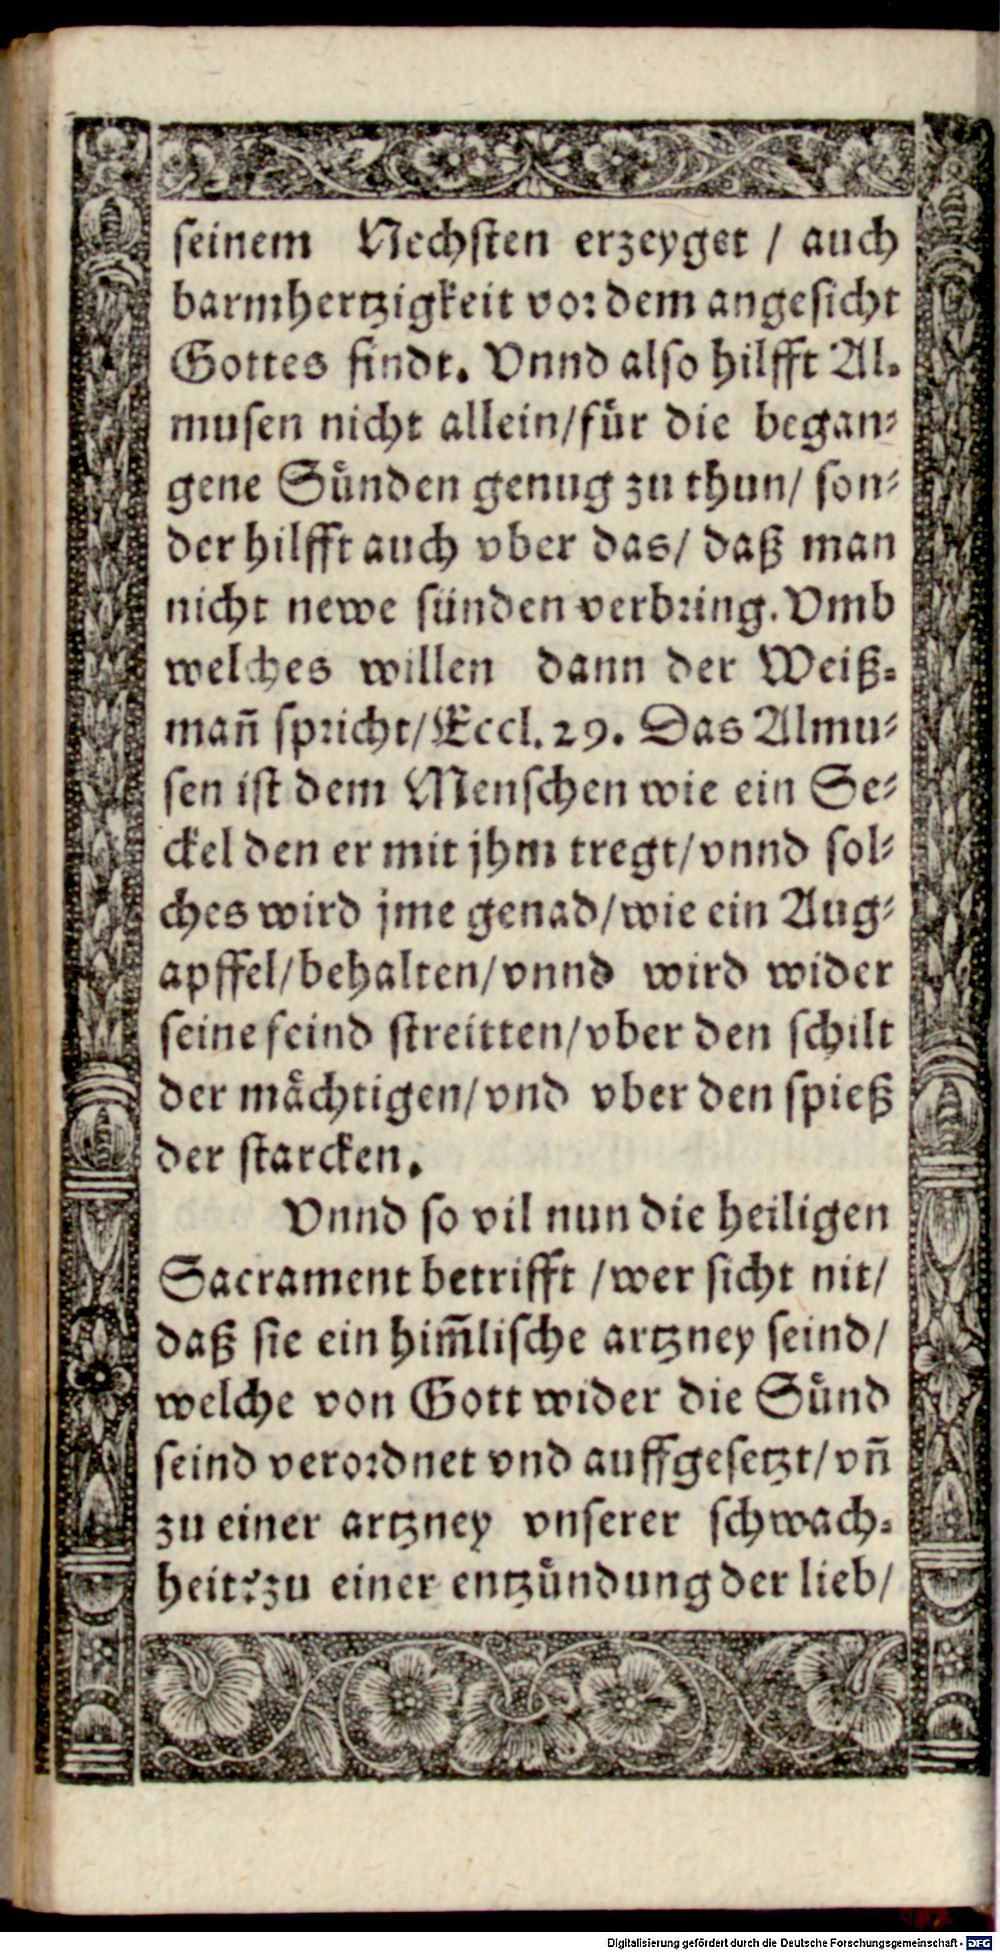 seinem Nechsten erzeyget / auch
barmhertzigkeit vor dem angesicht
Gottes findt. Vnnd also hilfft Al-
musen nicht allein/fuͤr die began-
gene Suͤnden genug zu thun/ son-
der hilfft auch vber das/ daß man
nicht newe sünden verbring. Vmb
welches willen dann der Weiß-
mañ spricht/Eccl. 29. Das Almu-
sen ist dem Menschen wie ein Se-
ckel den er mit jhm tregt/vnnd sol-
ches wird jme genad/wie ein Aug-
apffel/behalten/vnnd wird wider
seine feind streitten/vber den schilt
der maͤchtigen/vnd vber den spieß
der starcken.
Vnnd so vil nun die heiligen
Sacrament betrifft /wer sicht nit/
daß sie ein him̃lische artzney seind/
welche von Gott wider die Suͤnd
seind verordnet vnd auffgesetzt/vñ
zu einer artzney vnserer schwach-
heit?zu einer entzuͤndung der lieb/
Digitalisierung gefördert durch die Deutsche Forschungsgemeinschaft - DFG